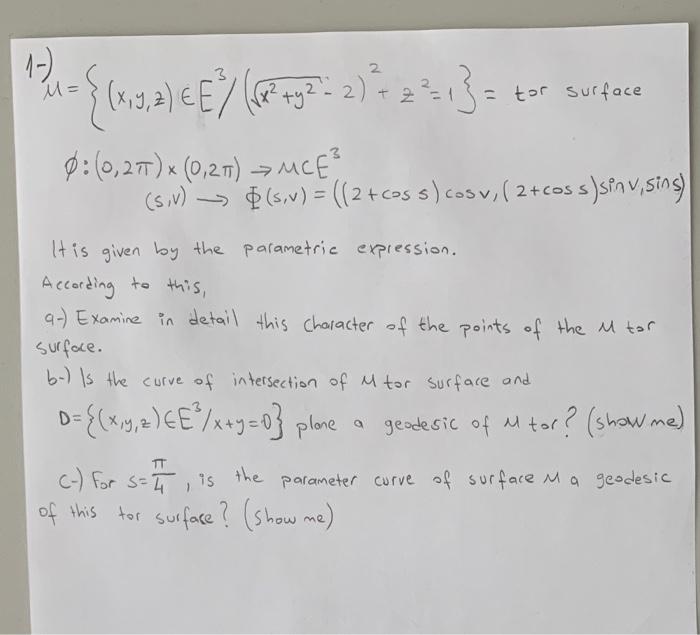 1-)
M = {(x,y,z) ∈ E³ / (√x²+y² - 2)² + z² = 1} = tor surface
Ø: (0,2π) × (0,2π) → M⊂E³
(s,v) → Φ(s,v) = ((2+cos s) cosv, (2+cos s) sinv, sins)
It is given by the parametric expression.
According to this,
a-) Examine in detail this character of the points of the M tor
surface.
b-) Is the curve of intersection of M tor surface and
D={(x,y,z)∈E³/x+y=0} plane a geodesic of M tor? (show me)
C-) For s=π/4, is the parameter curve of surface M a geodesic
of this tor surface? (show me)